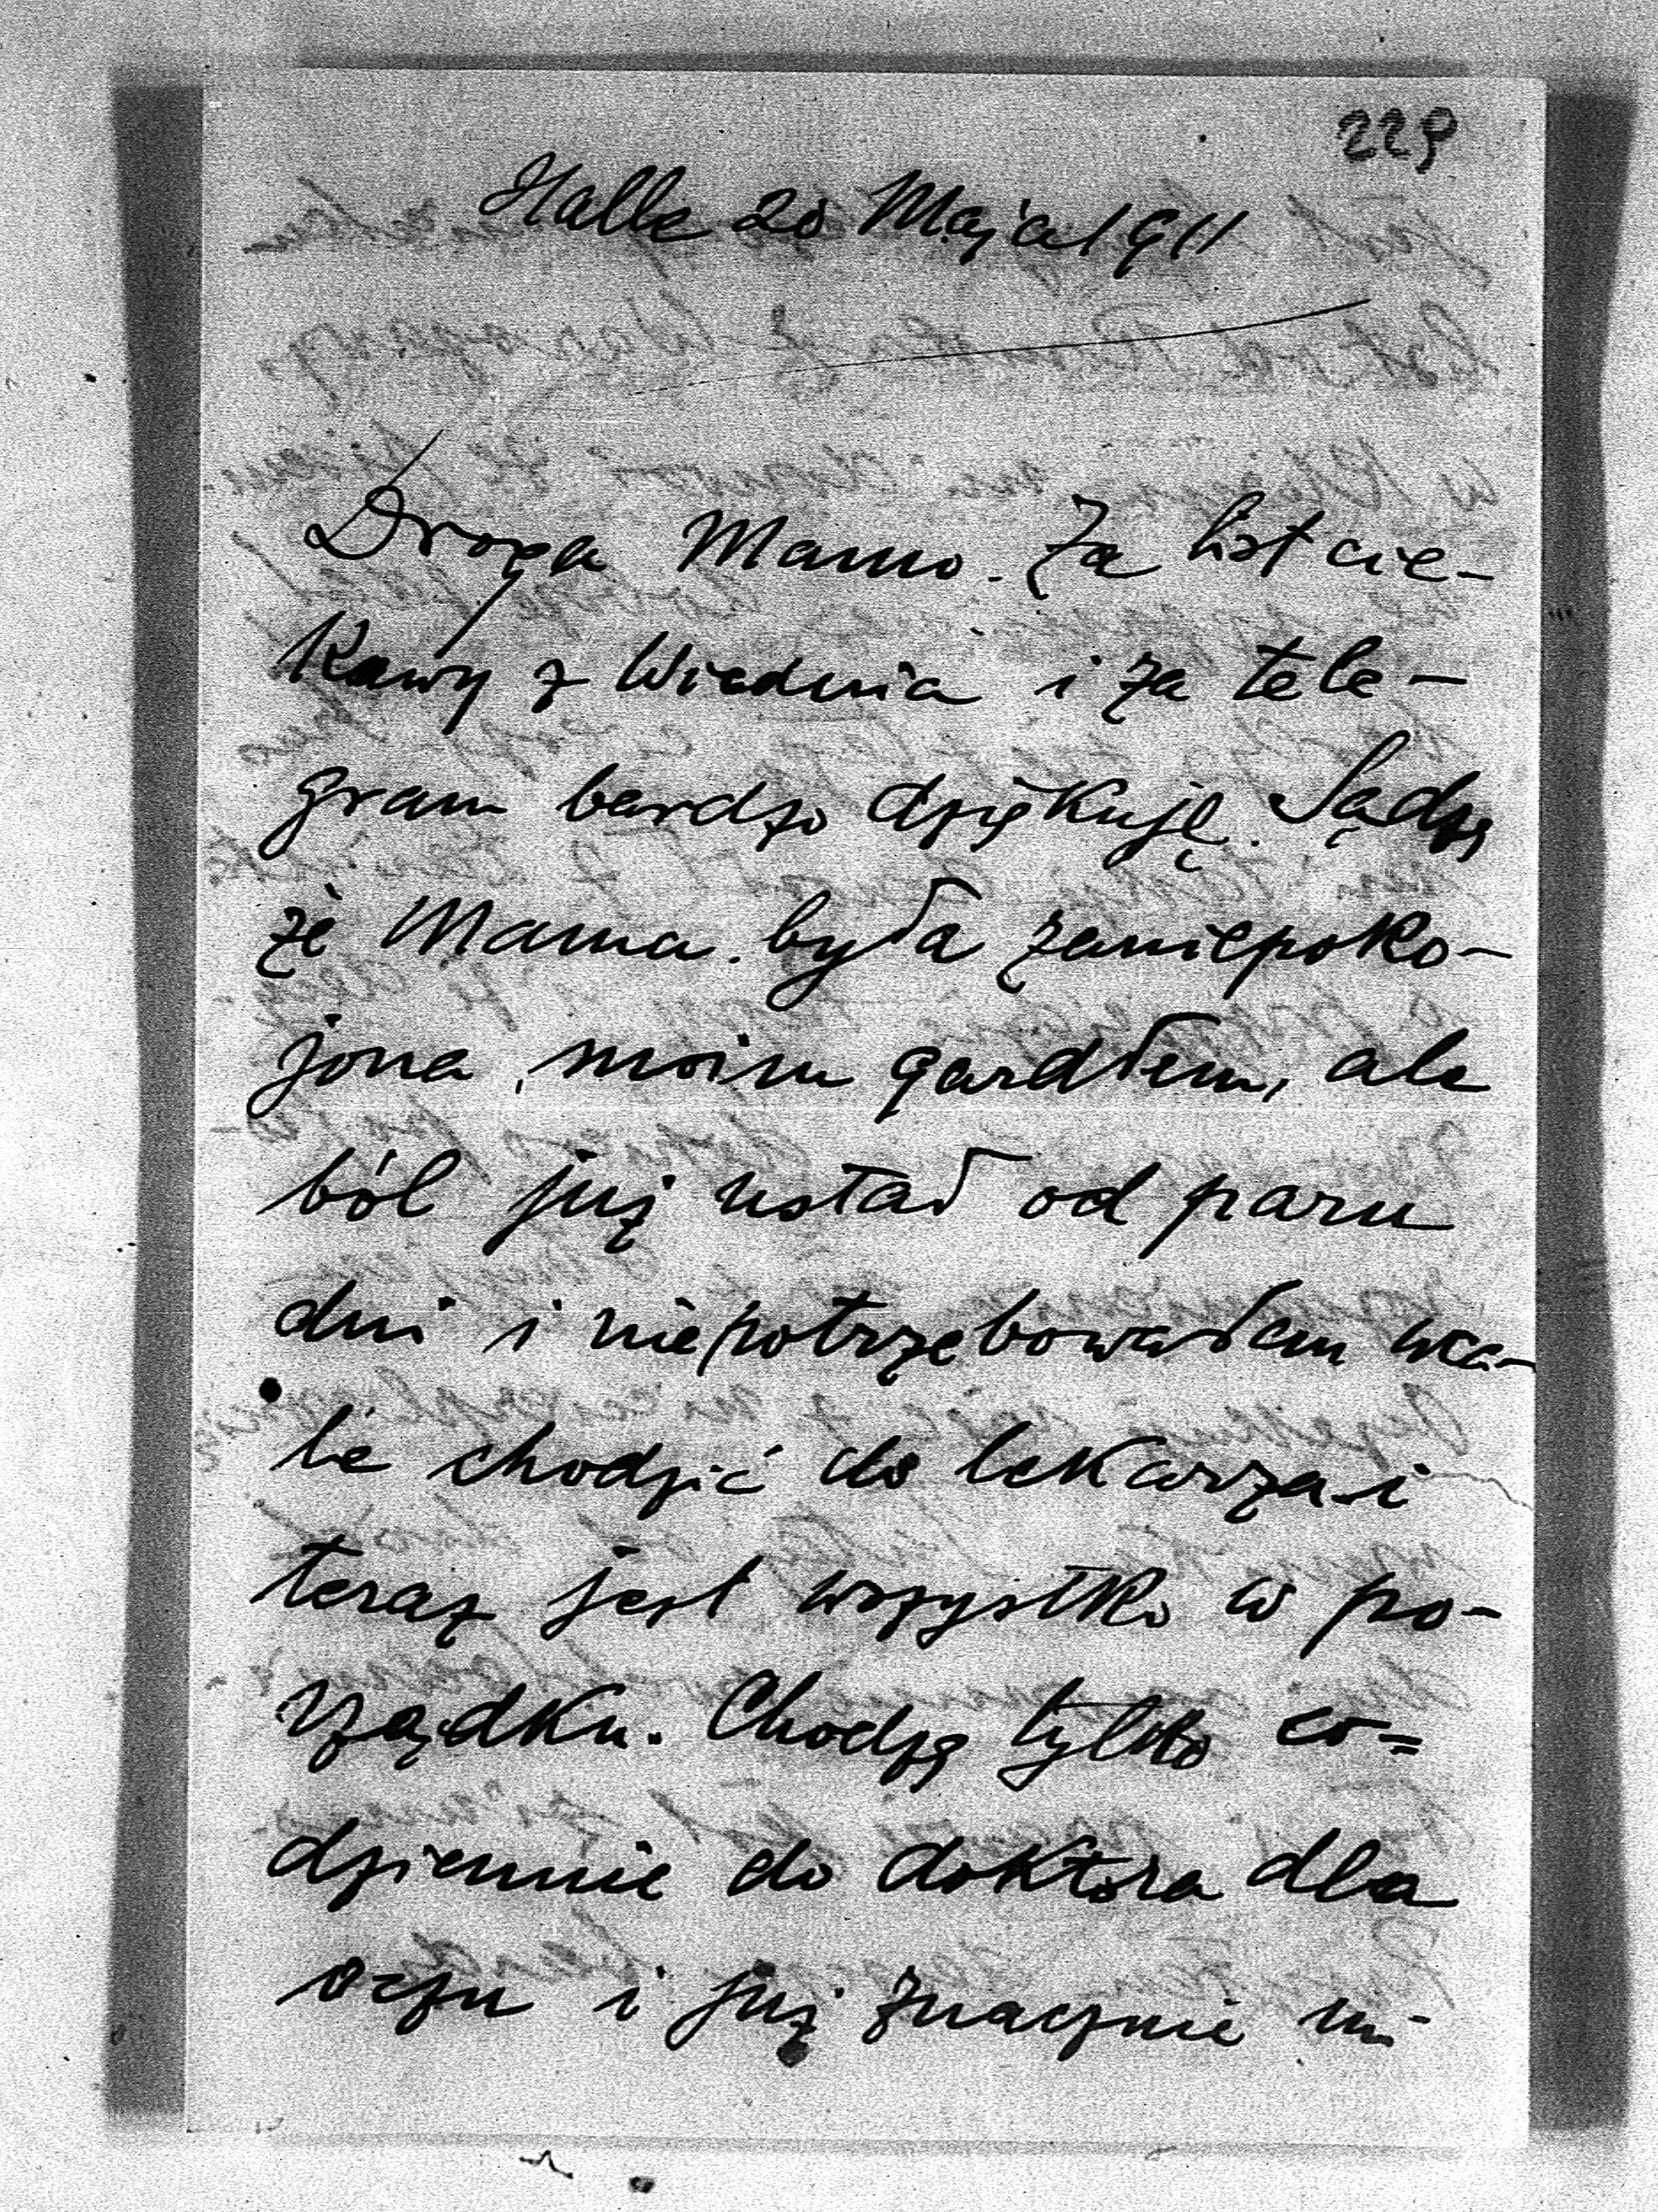 229
Halle 20 Maja 1911
Droga Mamo. Za list cie-
kawy z Wiednia i za tele-
gram bardzo dziękuję. Sądzę
że Mama była zaniepoko-
jona, moim gardłem, ale
ból już ustał od paru
dni i niepotrzebowałem wca-
le chodzić do lekarza i
teraz jest wszystko w po-
rządku. Chodzę tylko co=
dziennie do doktora dla
oczu i już znacznie mi